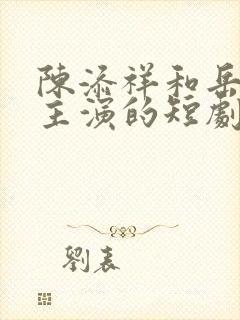 陳添祥和岳
主演的短劇
劉表